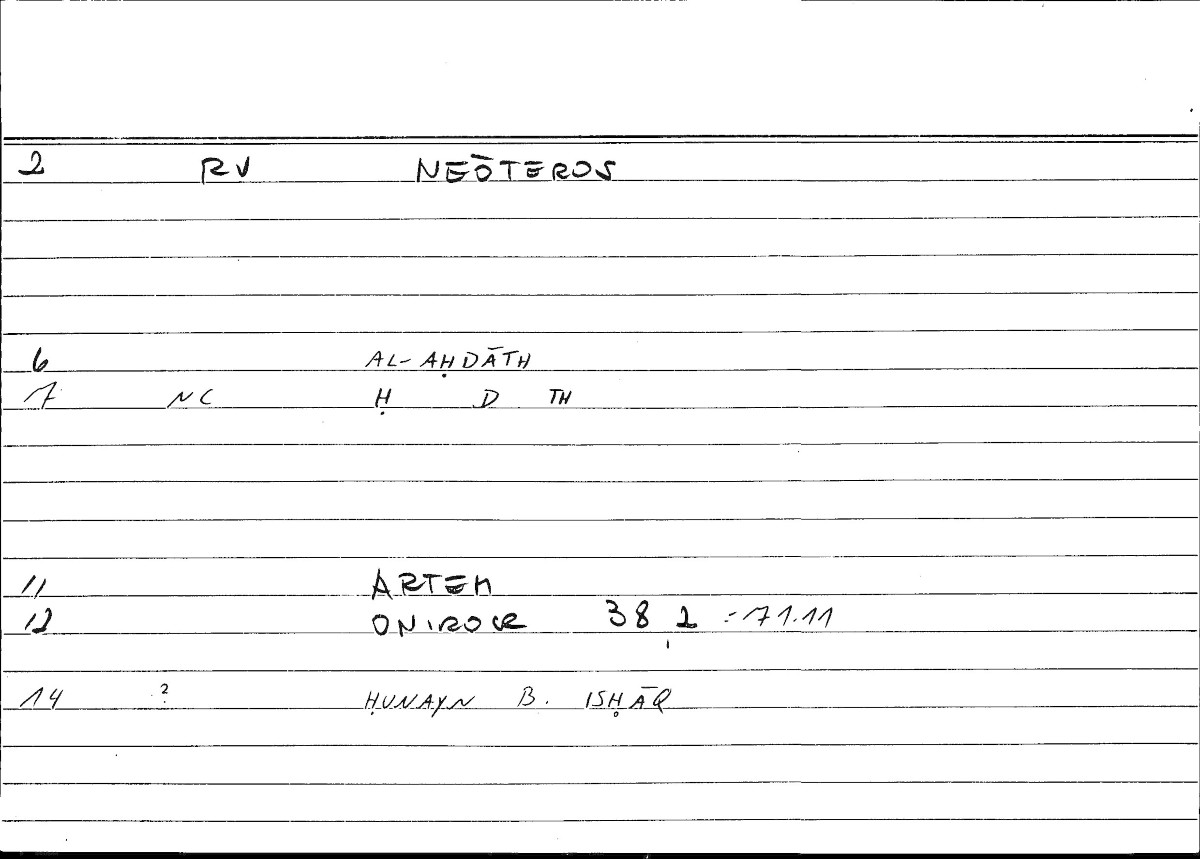 2 RV NEŌTEROS
6 AL-AḤDĀTH
7 NC Ḥ D TH
11 ARTEM
12 ONIROCR 38,2 = 71.11
14 ? ḤUNAYN B. ISḤĀQ